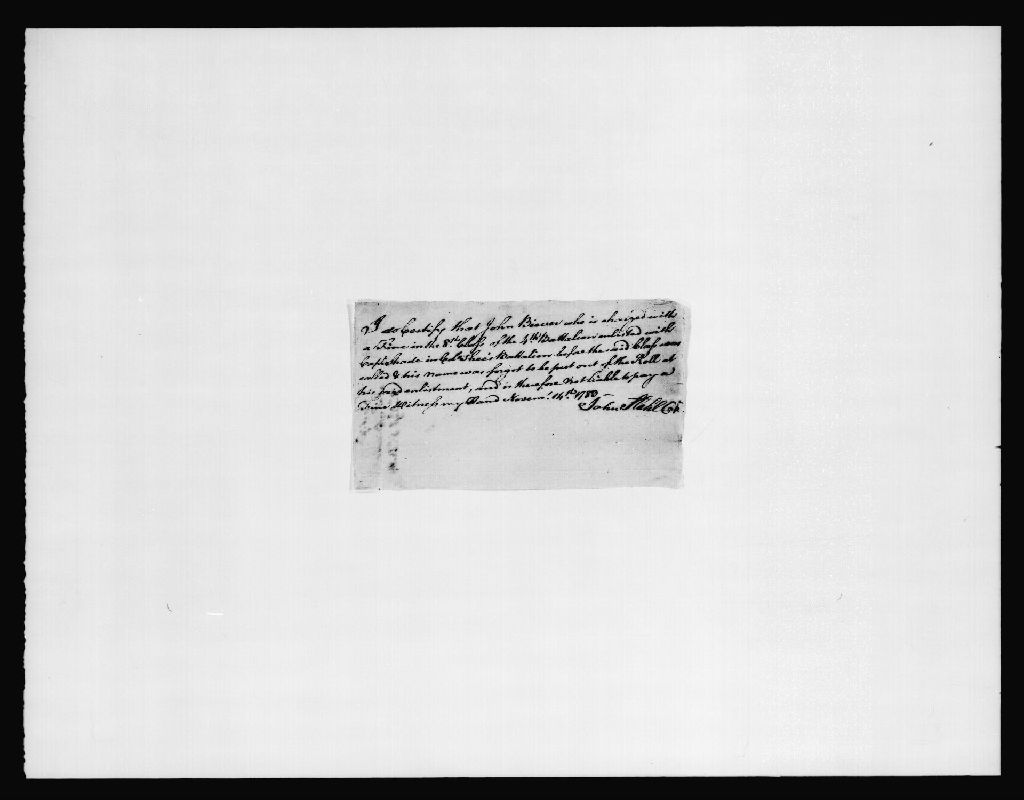 I do Certify that John who is charged with
a Fine in the 8th Class of the 4th Battalion enlisted with
Capt in Battalion before the said Class was
called & his name was forgot to be put out of the Roll at
his said enlistment, and is therefore not liable to pay a
Fine Witness my Hand Novemr. 14th 1780
John Cpt.